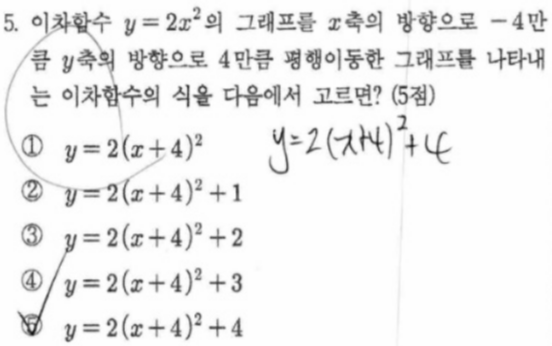 5. 이차함수 y=2x²의 그래프를 x축의 방향으로 -4만
큼 y축의 방향으로 4만큼 평행이동한 그래프를 나타내
는 이차함수의 식을 다음에서 고르면? (5점)
① y=2(x+4)²
y=2(x+4)²+4
② y=2(x+4)²+1
③ y=2(x+4)²+2
④ y=2(x+4)²+3
⑤ y=2(x+4)²+4